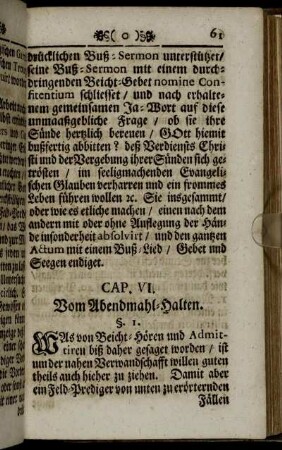 ( 0 ) 61
drücklichen Buß-Sermon unterstützet/
seine Buß-Sermon mit einem durch-
dringenden Beicht-Gebet nomine Con-
fitentium schliesset / und nach erhalte-
nem gemeinsamen Ja-Wort auf diese
unmaaßgebliche Frage / ob sie ihre
Sünde hertzlich bereuen / GOtt hiemit
bußfertig abbitten? deß Verdiensts Chri-
sti und der Vergebung ihrer Sünden sich ge-
trösten / im seeligmachenden Evangeli-
schen Glauben verharren und ein frommes
Leben führen wollen ꝛc. Sie insgesammt/
oder wie es etliche machen / einen nach dem
andern mit oder ohne Aufflegung der Hän-
de insonderheit absolvirt / und den gantzen
Actum mit einem Buß-Lied / Gebet und
Seegen endiget.
CAP. VI.
Vom Abendmahl-Halten.
§. 1.
WAs von Beicht-Hören und Admit-
tiren biß daher gesaget worden / ist
um der nahen Verwandschafft willen guten
theils auch hieher zu ziehen. Damit aber
ein Feld-Prediger von unten zu erörternden
Fällen